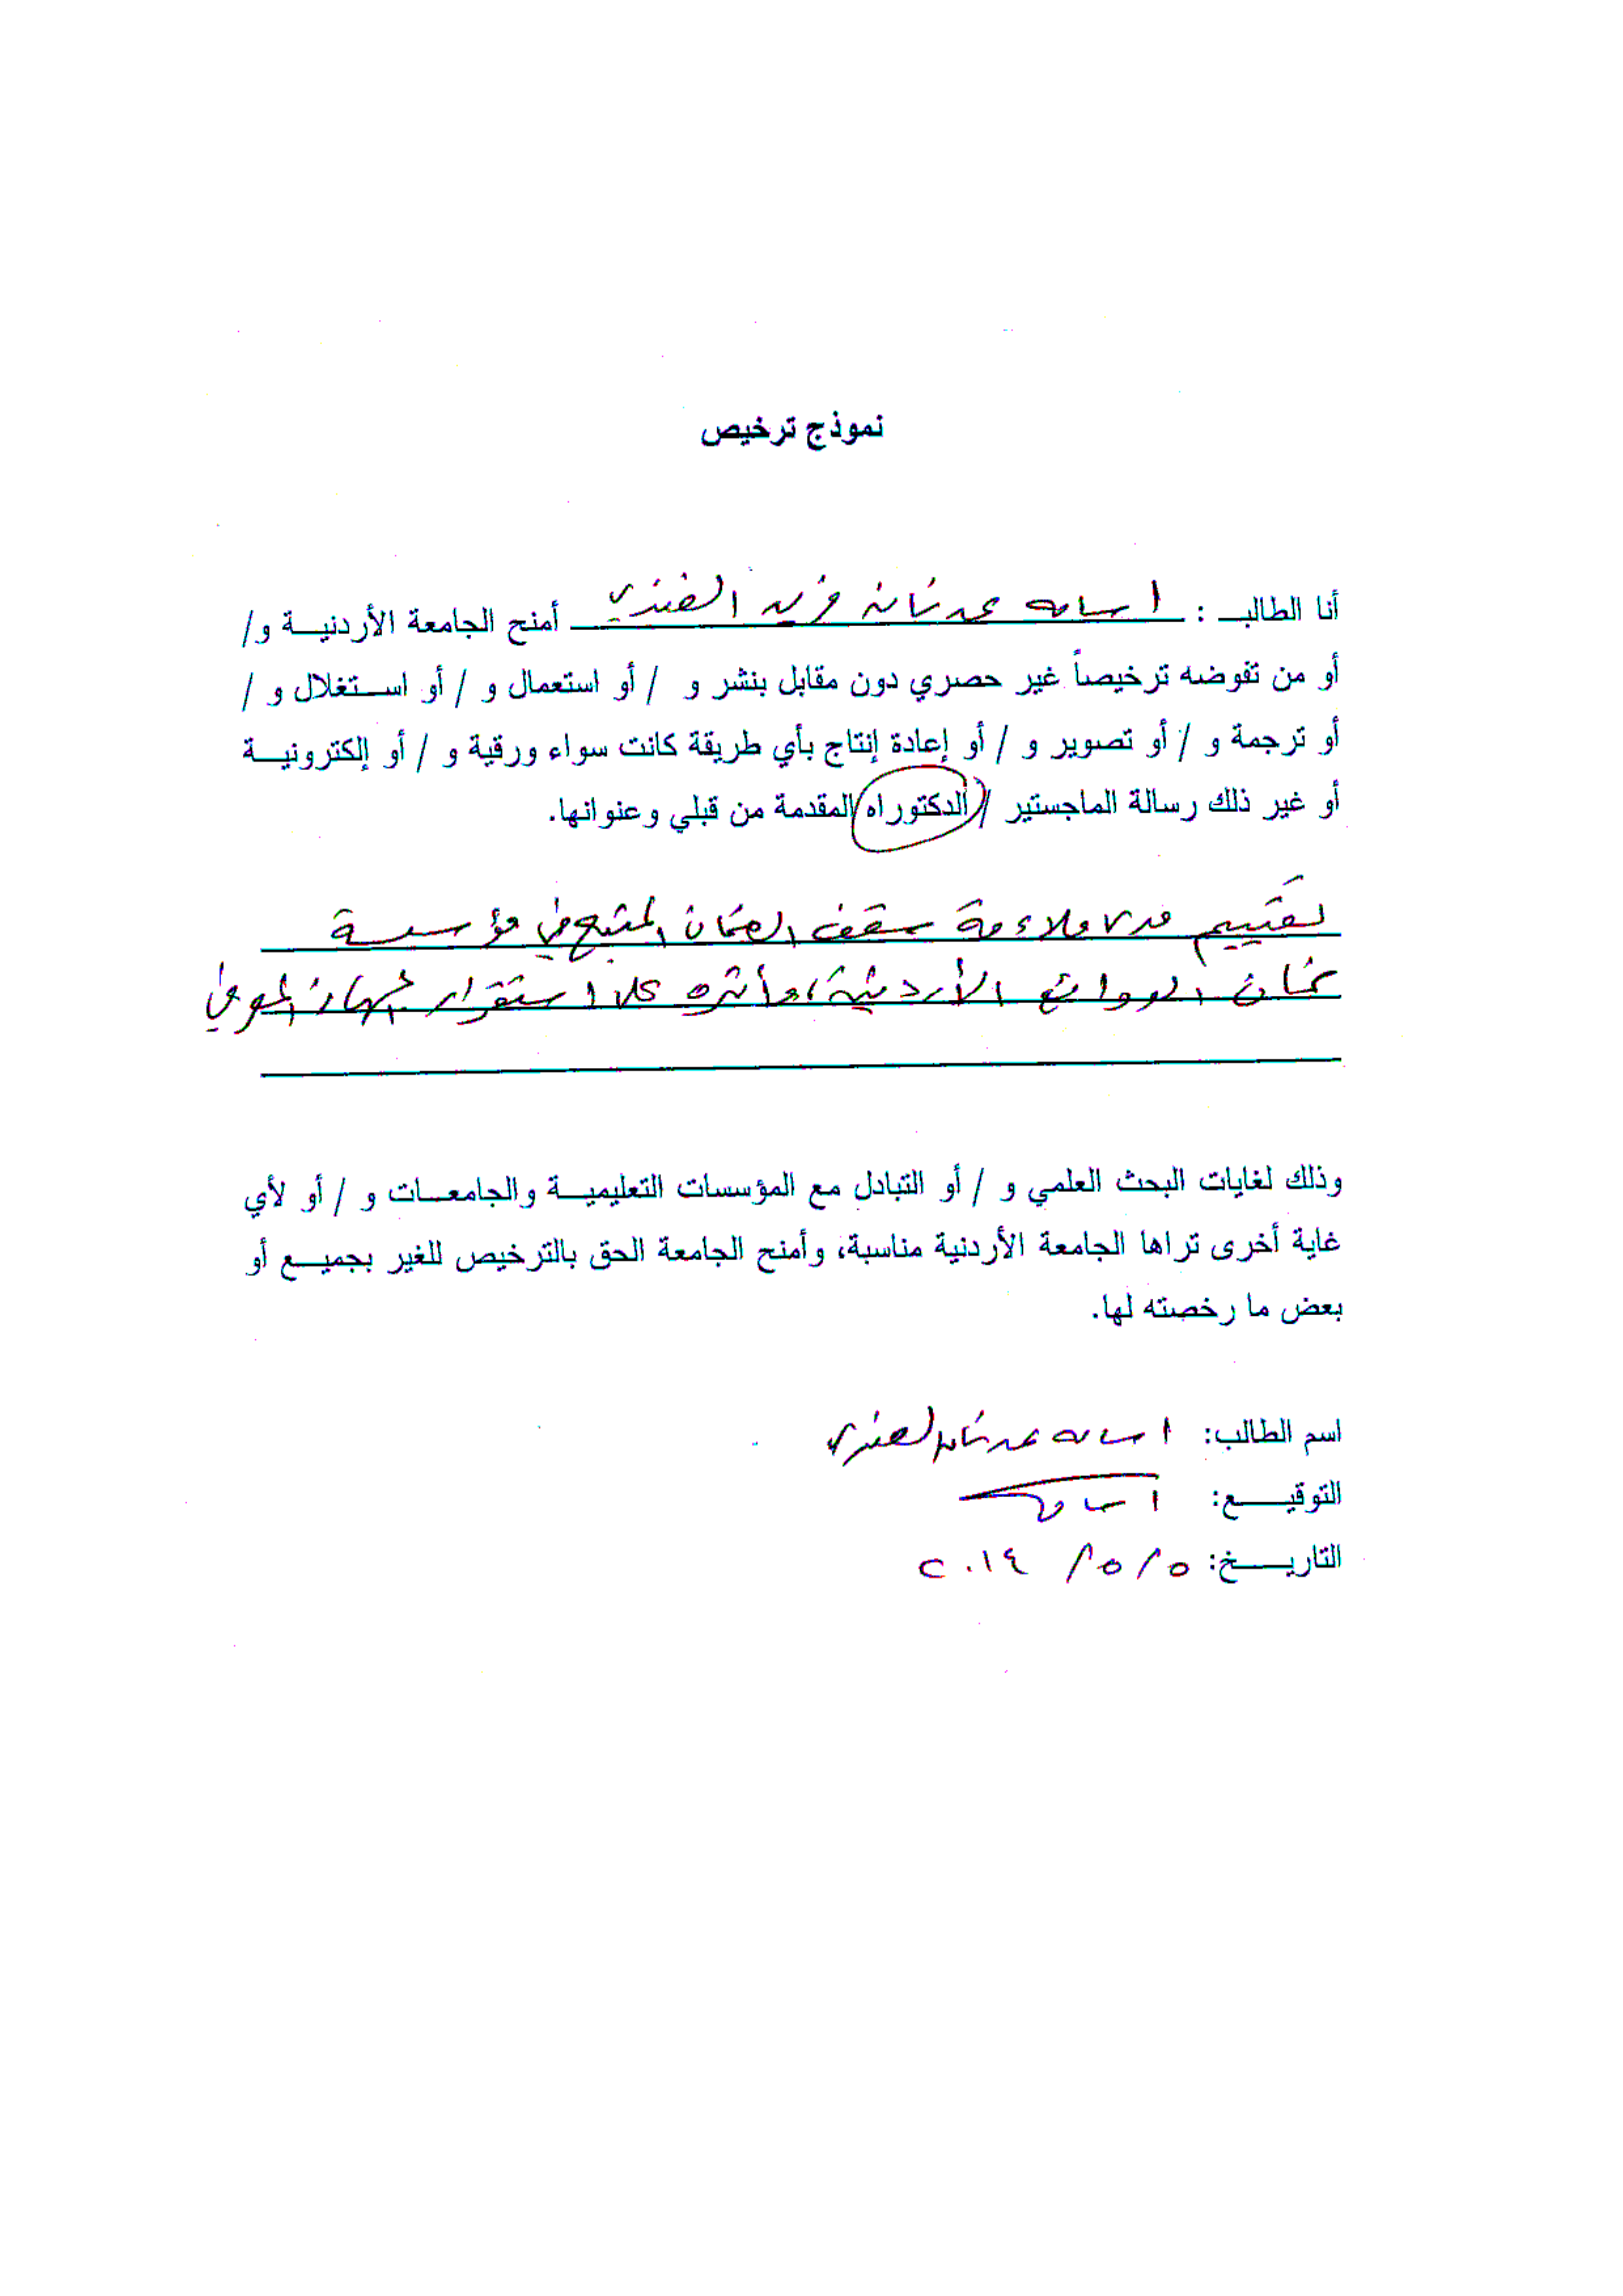 نموذج ترخيص
أنا الطالب : اسامه عدنان فريد الفندي أمنح الجامعة الأردنية و/
أو من تفوضه ترخيصاً غير حصري دون مقابل بنشر و / أو استعمال و / أو استغلال و /
أو ترجمة و / أو تصوير و / أو إعادة إنتاج بأي طريقة كانت سواء ورقية و / أو إلكترونية
أو غير ذلك رسالة الماجستير / الدكتوراه المقدمة من قبلي وعنوانها.
تقييم مدى ملاءمة سقف الضمان المتبع في مؤسسة
ضمان الودائع الأردنية، وأثره على استقرار الجهاز المصرفي
وذلك لغايات البحث العلمي و / أو التبادل مع المؤسسات التعليمية والجامعات و / أو لأي
غاية أخرى تراها الجامعة الأردنية مناسبة، وأمنح الجامعة الحق بالترخيص للغير بجميع أو
بعض ما رخصته لها.
اسم الطالب: اسامه عدنان الفندي
التوقيع: اسامه
التاريخ: ٥ / ٥ / ٢٠١٤